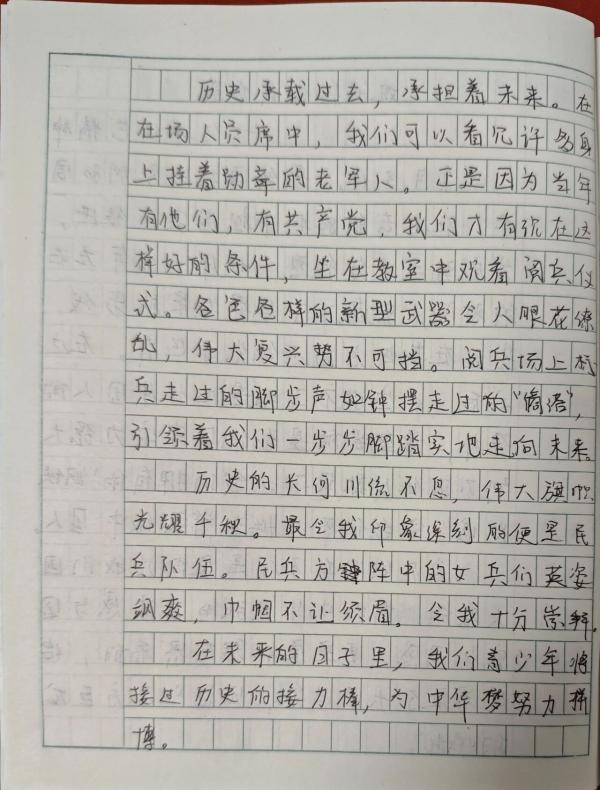 历史承载过去，承担着未来。在
在场人员席中，我们可以看见许多身
上挂着勋章的老军人。正是因为当年
有他们，有共产党，我们才有现在这
样好的条件，坐在教室中观看阅兵仪
式。各色各样的新型武器令人眼花缭
乱，伟大复兴势不可挡。阅兵场上
兵走过的脚步声如钟摆走过的“嘀嗒”，
引领着我们一步步脚踏实地走向未来。
历史的长河川流不息，伟大旗帜
光耀千秋。最令我印象深刻的便是民
兵队伍。民兵方阵中的女兵们英姿
飒爽，巾帼不让须眉。令我十分崇拜。
在未来的日子里，我们青少年将
接过历史的接力棒，为中华梦努力拼
搏。